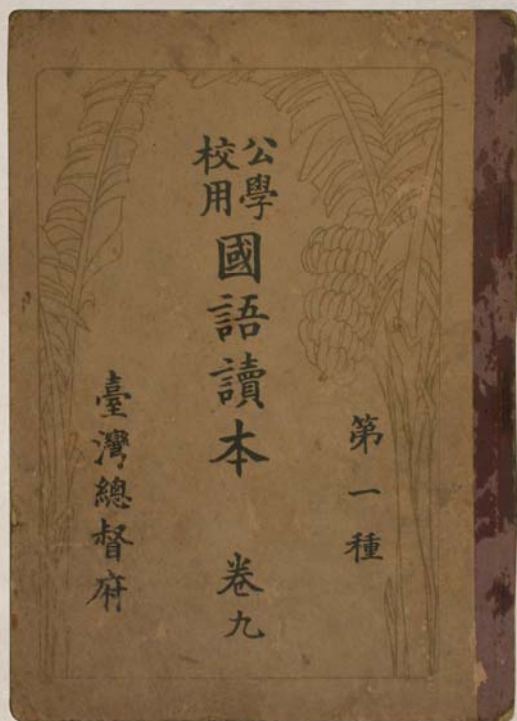 第一種
公學校用
國語讀本 卷九
臺灣總督府